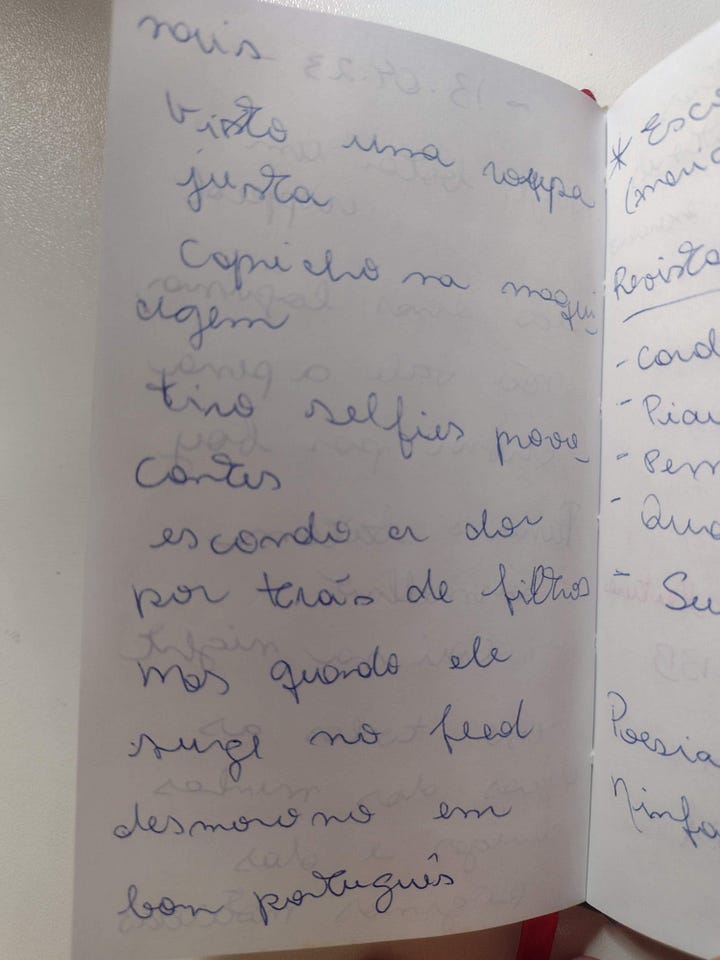 mais
Visto uma roupa
justa
Capricho na maqui-
agem
tiro selfies provo-
cantes
escondo a dor
por trás de filtros
mas quando ele
surge no feed
desmorono em
bom português
* Esc
Revista
- Cord
- Piau
- Su
Poesia
Ninfa